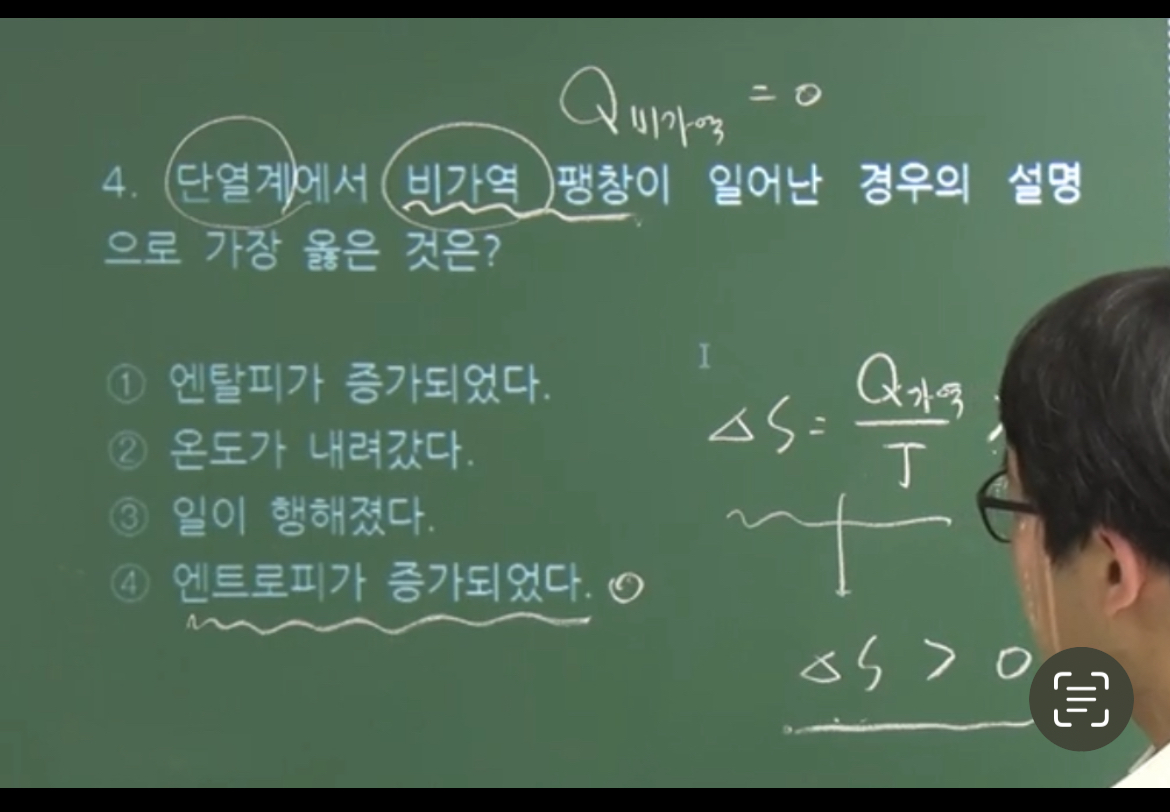 Q비가역 = 0
4. 단열계에서 비가역 팽창이 일어난 경우의 설명
으로 가장 옳은 것은?
① 엔탈피가 증가되었다.
② 온도가 내려갔다.
③ 일이 행해졌다.
④ 엔트로피가 증가되었다. O
ΔS = Q가역 / T
ΔS > 0